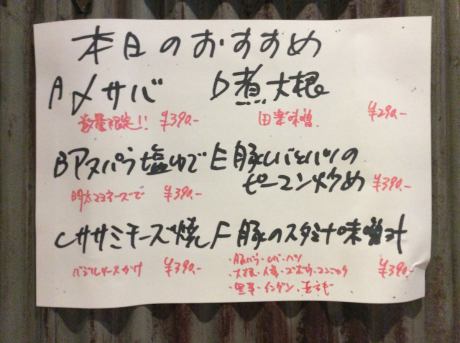 本日のおすすめ
A〆サバ
数量限定!! ¥390-
D煮大根
田楽味噌 ¥290-
Bアスパラ塩ゆで
明太マヨネーズで ¥390-
E豚レバとハツの
ピーマン炒め ¥390-
Cササミチーズ焼
バジルソースかけ ¥390-
F豚のスタミナ味噌汁
・豚バラ・レバ・ハツ ¥390-
・大根・人参・ゴボウ・コンニャク
・インゲン・玉ネギ